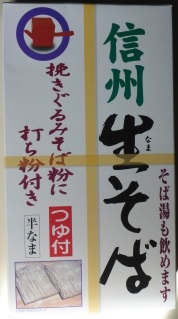 信州
生そば
なま
そば湯も飲めます
挽きぐるみそば粉に
打ち粉付き
つゆ付
半なま